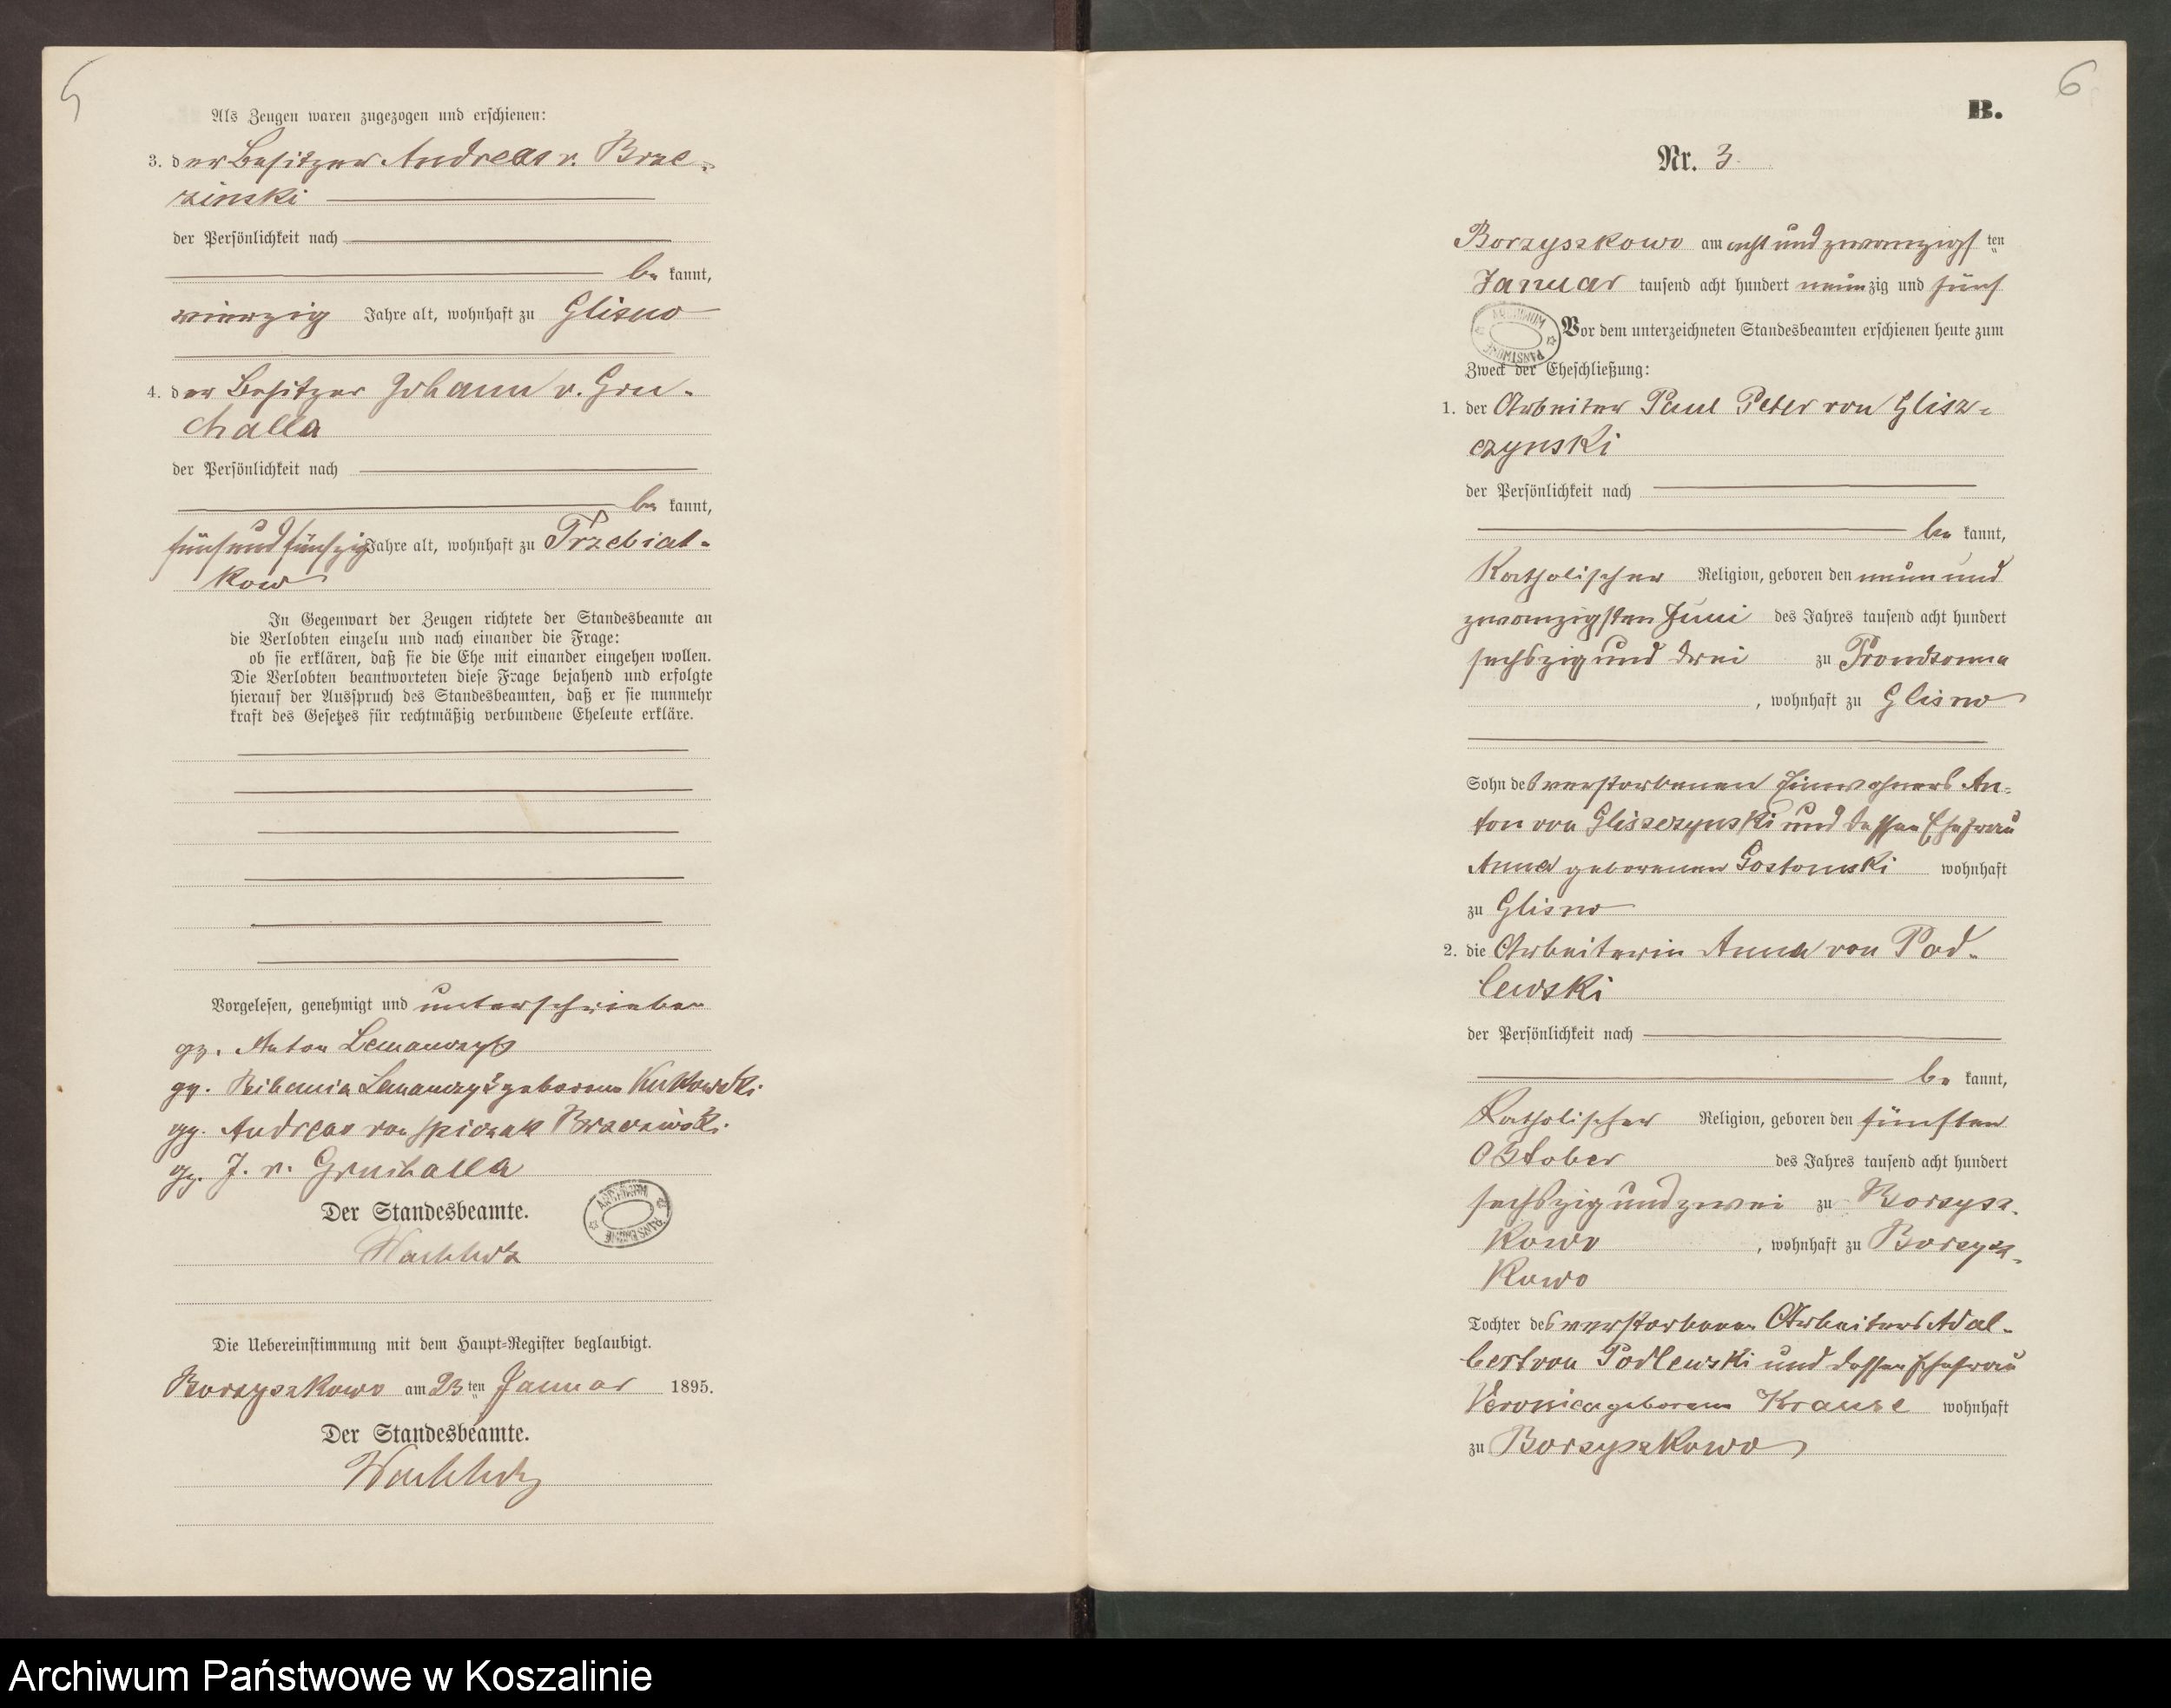 5
Als Zeugen waren zugezogen und erschienen:
3. der Besitzer Andreas v. Brze-
zinski
der Persönlichkeit nach
be kannt,
vierzig Jahre alt, wohnhaft zu Glisno
4. der Besitzer Johann v. Gru-
challa
der Persönlichkeit nach
be kannt,
fünfundfünfzig Jahre alt, wohnhaft zu Trzebiat-
kow
In Gegenwart der Zeugen richtete der Standesbeamte an
die Verlobten einzeln und nach einander die Frage:
ob sie erklären, daß sie die Ehe mit einander eingehen wollen.
Die Verlobten beantworteten diese Frage bejahend und erfolgte
hierauf der Ausspruch des Standesbeamten, daß er sie nunmehr
kraft des Gesetzes für rechtmäßig verbundene Eheleute erkläre.
Vorgelesen, genehmigt und unterschrieben
gz. Anton Lemanczyk
gz. Lemanczyk geborene Kukowski.
gz. Andreas von Spiczak Brzezinski.
gz. J. v. Gruchalla
Der Standesbeamte.
Wachholz
Die Uebereinstimmung mit dem Haupt-Register beglaubigt.
Borzyszkowo am 23 ten Januar 1895.
Der Standesbeamte.
Wachholz
6
B.
Nr. 3.
Borzyszkowo am acht und zwanzigs ten
Januar tausend acht hundert neun zig und fünf
ARCHIWUM PAŃSTWOWE
Vor dem unterzeichneten Standesbeamten erschienen heute zum
Zweck der Eheschließung:
1. der Arbeiter Paul Peter von Glisz-
czynski
der Persönlichkeit nach
be kannt,
Katholischer Religion, geboren den neun und
zwanzigsten Juni des Jahres tausend acht hundert
sechszig und drei zu Prondzonna
, wohnhaft zu Glisno
Sohn des verstorbenen Einwohners An-
ton von Gliszczynski und dessen Ehefrau
Anna geborenen Gostomski wohnhaft
zu Glisno
2. die Arbeiterin Anna von Pod-
lewski
der Persönlichkeit nach
be kannt,
Katholischer Religion, geboren den fünften
Oktober des Jahres tausend acht hundert
sechszig und zwei zu Borzysz-
kowo , wohnhaft zu Borzysz-
kowo
Tochter des verstorbenen Arbeiters Adal-
bert von Podlewski und dessen Ehefrau
Veronica geborene Krause wohnhaft
zu Borzyszkowo
Archiwum Państwowe w Koszalinie